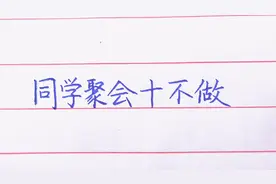 同学聚会十不做